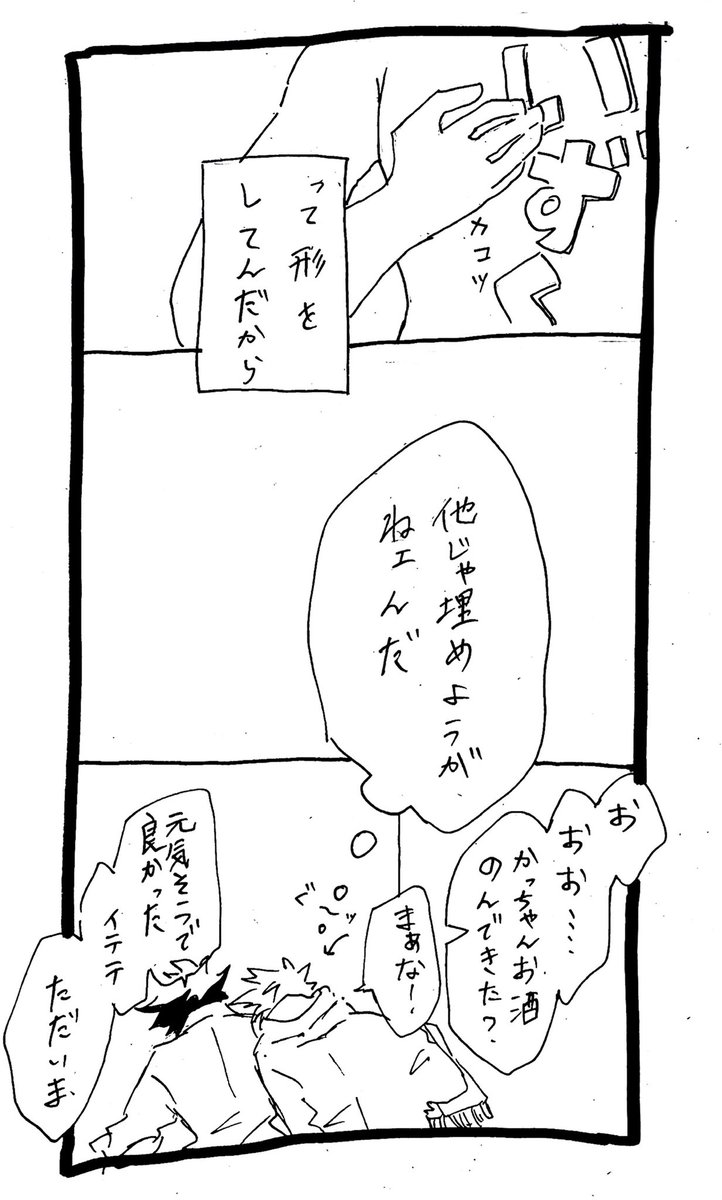 ずく
カコッ
って形を
してんだから
他じゃ埋めようが
ねェんだ
お
おお…
かっちゃんお酒
のんできた?
まぁな!
ぐ〜ッ
元気そうで
良かった
イテテ
ただいま